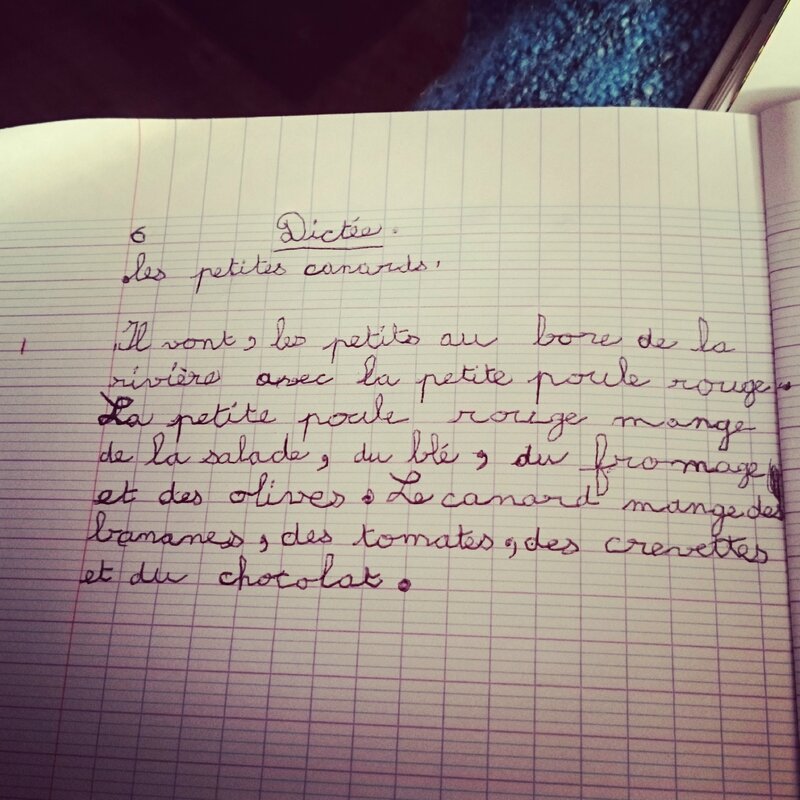 6 Dictée.
les petites canards.
Il vont, les petits au bore de la
rivière avec la petite poule rouge.
La petite poule rouge mange
de la salade, du blé, du fromage
et des olives. Le canard mange des
bananes, des tomates, des crevettes
et du chocolat.